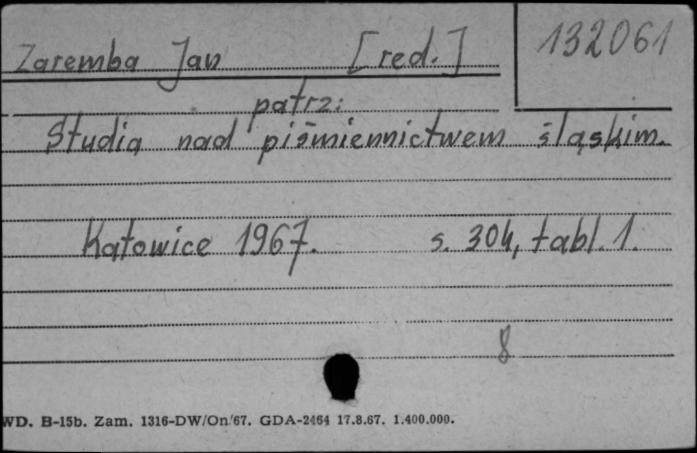 132061
Zaremba Jan [red.]
patrz:
Studia nad piśmiennictwem śląskim.
Katowice 1967. s. 304, tabl. 1.
8
WD. B-15b. Zam. 1316-DW/On/67. GDA-2464 17.8.67. 1.400.000.